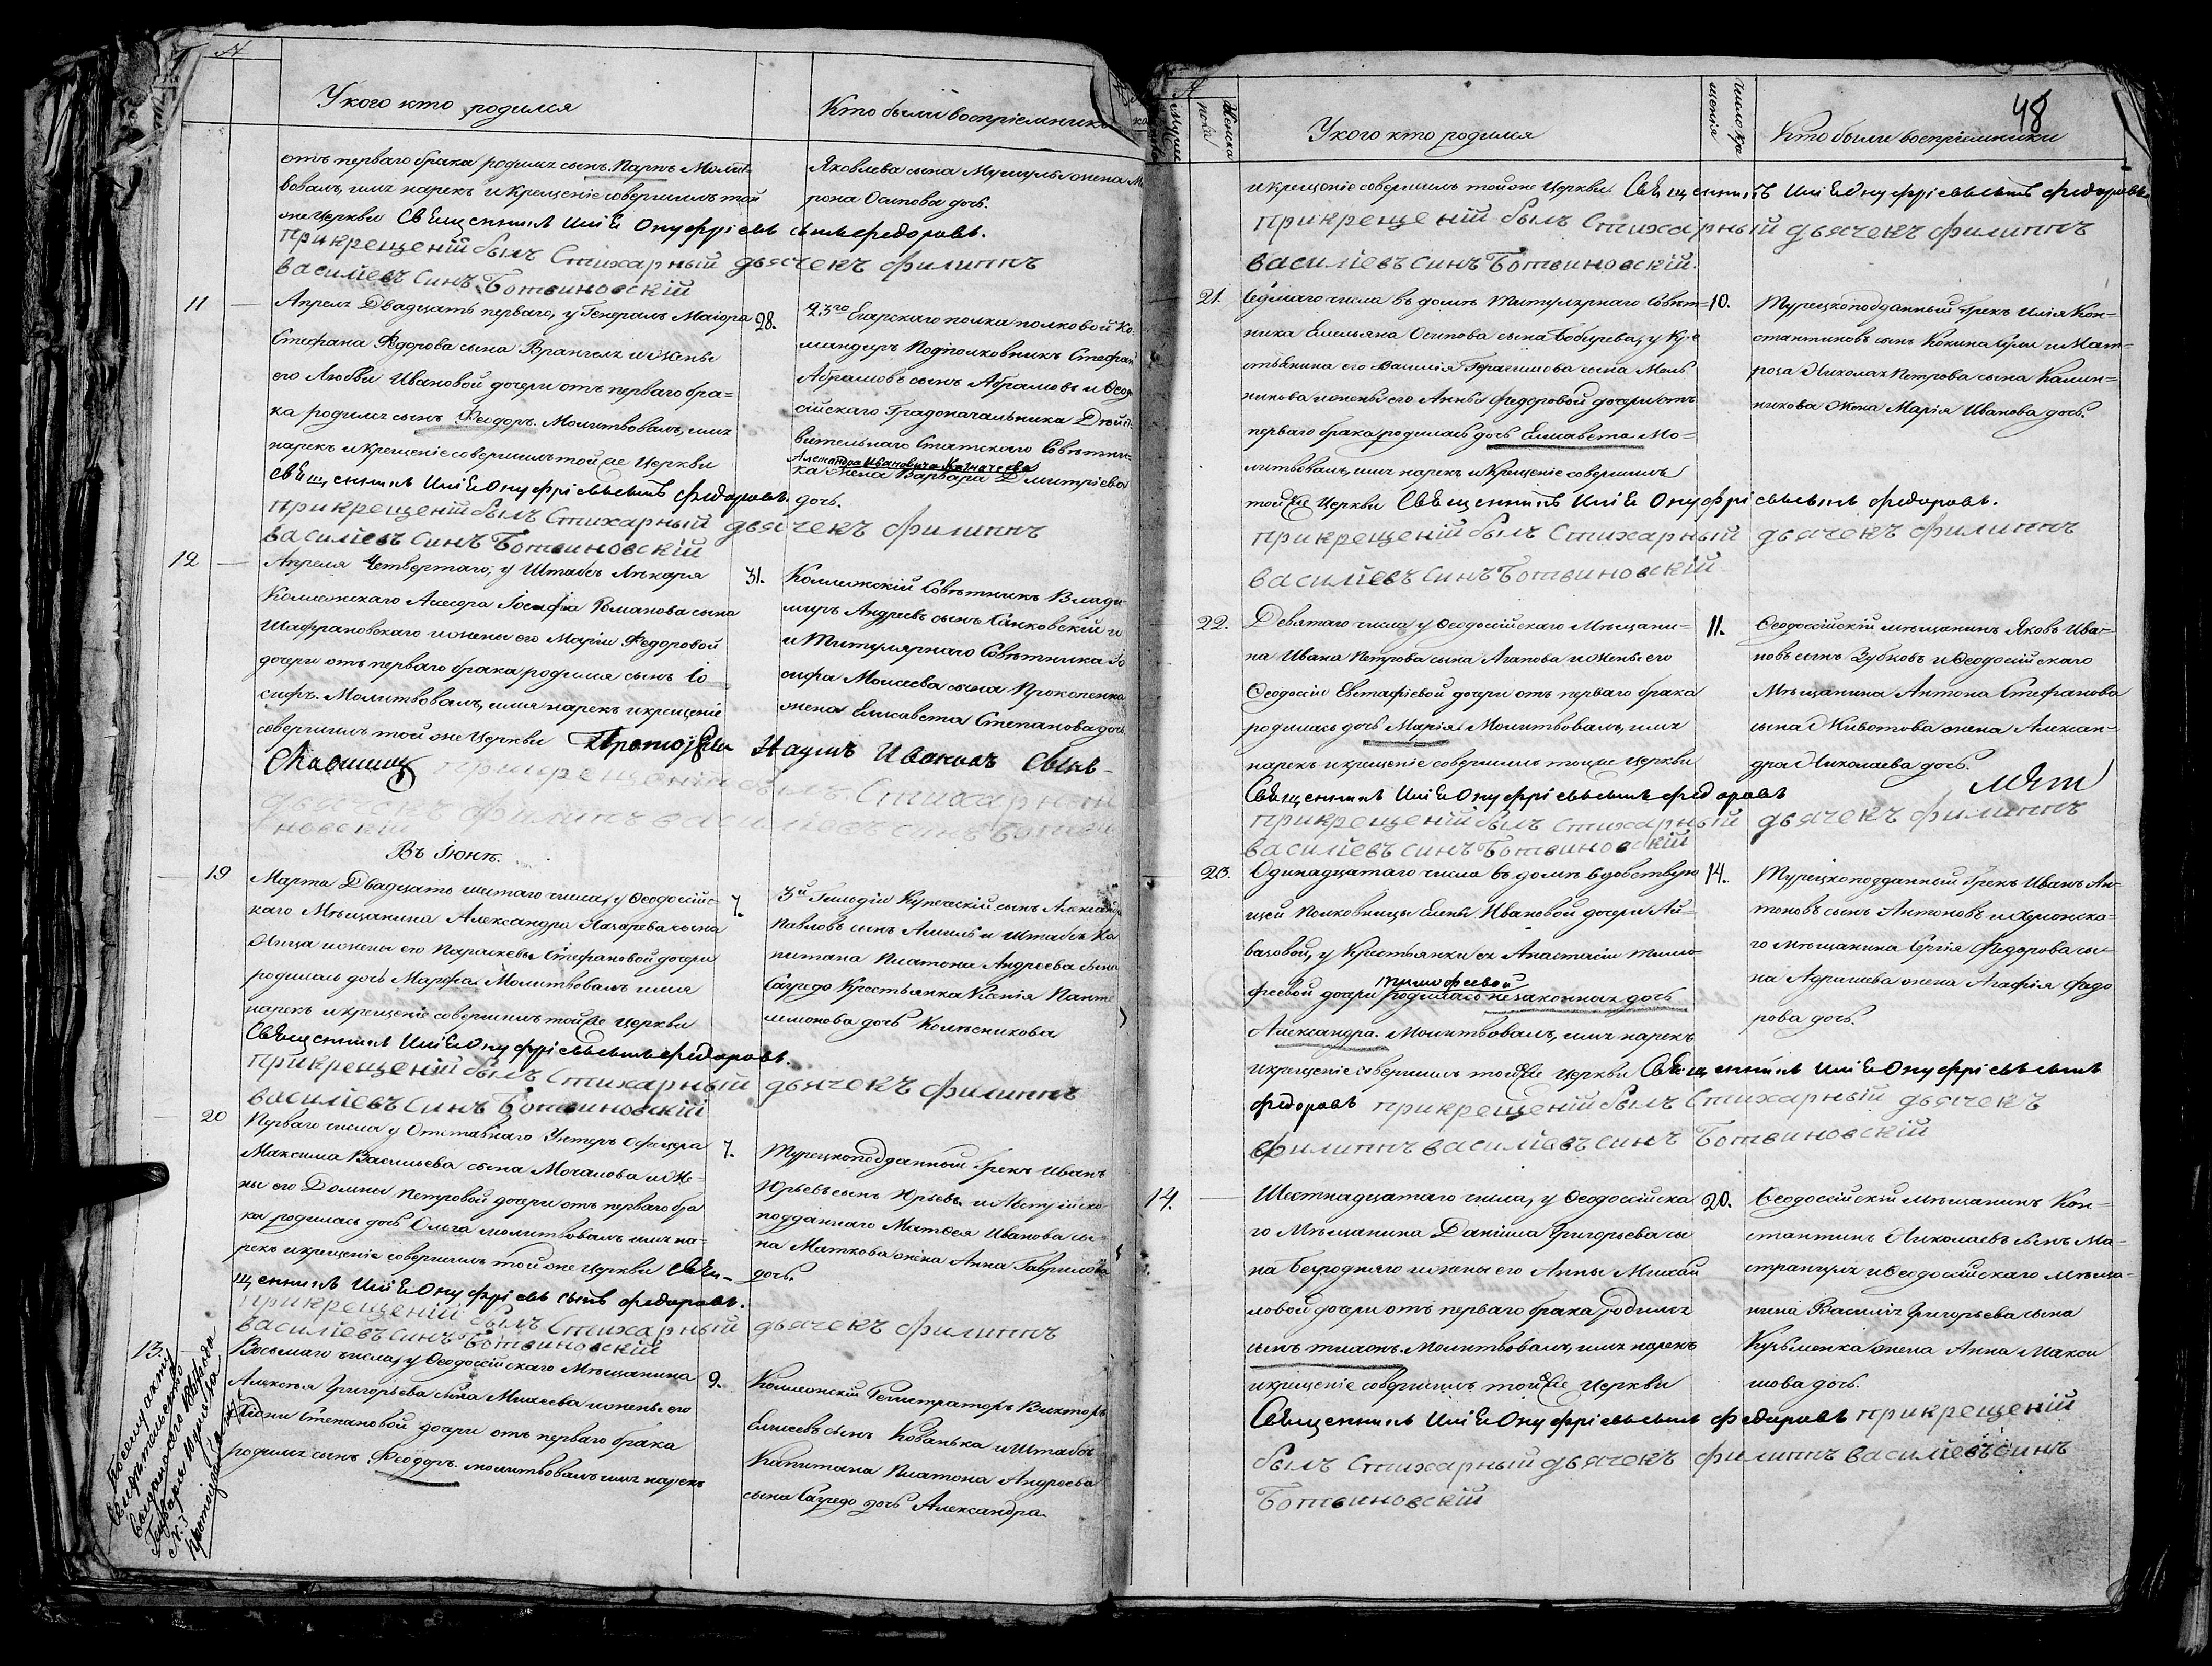 №
У кого кто родился
Кто были воспріемники
отъ перваго брака родился сынъ
вовалъ, имя нарекъ и крещеніе совершилъ той
же Церкви Священникъ Иліѣ Онуфріевъ сынъ Федоровъ.
прикрещеній былъ Стихарный дьячекъ филиппъ
василіевъ синъ Ботвиновскій
Яковлева сына жена
рона Осипова дочь.
11
Апреля Двадцать перваго, у Генералъ Маіора
Стефана Федорова сына Врангеля и жены
его Любви Ивановой дочери отъ перваго бра=
ка родился сынъ Феодоръ. Молитвовалъ, имя
нарекъ и крещеніе совершилъ той же Церкви
Священникъ Иліѣ Онуфріевъ сынъ Федоровъ.
прикрещеній былъ Стихарный дьячекъ филиппъ
василіевъ синъ Ботвиновскій
28.
Егарскаго полка полковой Ко
мандиръ Подполковникъ Стефан
Абрамовъ сынъ Абрамовъ и Ѳеодо
сійскаго Градоначальника Дѣйст
вительнаго Статскаго Совѣтни=
Александра Ивановича Казначеева
ка жена Варвара Дмитріева
дочь.
12
Апреля Четвертаго, у Штабъ Лѣкаря
Колежскаго Асесора Іосифа Романова сына
Шафрановскаго и жены его Маріи Федоровой
дочери отъ перваго брака родился сынъ Іо
сифъ. Молитвовалъ, имя нарекъ и крещеніе
совершилъ той же Церкви Протоіерей Наумъ Ивановъ Сынъ
прикрещеній былъ Стихарный
дьячекъ филиппъ василіевъ синъ Ботви
новскій
31.
Коллежскій Совѣтникъ Влади
миръ Андреевъ сынъ Ганковскій и
и Титулярнаго Совѣтника Іо
сифа Моисеева сына Прокопенка
жена Елисавета Степанова дочь
Въ Іюнѣ.
19
Марта Двадцать шестаго числа, у Ѳеодосійс
каго Мѣщанина Александра Лазарева сына
и жены его Параскевы Стефановой дочери
родилась дочь Марфа. Молитвовалъ имя
нарекъ и крещеніе совершилъ той же Церкви
Священникъ Иліѣ Онуфріевъ сынъ Федоровъ.
прикрещеній былъ Стихарный дьячекъ филиппъ
василіевъ синъ Ботвиновскій
7.
3й Гильдіи Купеческій сынъ Александр
Павловъ сынъ и Штабсъ Ка
питана Платона Андреева сына
Сагредо Крестьянка Ксенія Панте
леимонова дочь Колѣсникова
20
Перваго числа у Отставнаго Унтеръ Офицера
Максима Васильева сына Мочалова и Же=
ны его Домны Петровой дочери отъ перваго бра
ка родилась дочь Ольга молитвовалъ имя на=
рекъ и крещеніе совершилъ той же Церкви Свя=
щенникъ Иліѣ Онуфріевъ сынъ Федоровъ.
прикрещеній былъ Стихарный дьячекъ филиппъ
василіевъ синъ Ботвиновскій
7.
Турецкоподданный Грекъ Иванъ
Юрьевъ сынъ Юрьевъ и Австрійско
подданнаго Матвея Иванова сы=
на Маткова жена Анна Гаврилова
дочь.
13.
Восьмаго числа, у Ѳеодосійскаго Мѣщанина
Алексѣя Григорьева сына Михеева и жены его
Степановой дочери отъ перваго брака
родился сынъ Феодоръ. молитвовалъ имя нарекъ
9.
Коллежскій Регистраторъ Викторъ
Елисеевъ сынъ Кованька и Штабсъ
Капитана Платона Андреева
сына Сагредо дочь Александра.
По сему акту
свидѣтельство
выдано
№ 3
Протоіерей
48
№
Мужес
Женска
пола
У кого кто родился
число кре
щенія
Кто были воспріемники
и крещеніе совершилъ той же Церкви Священникъ Иліѣ Онуфріевъ сынъ Федоровъ.
прикрещеній былъ Стихарный дьячекъ филиппъ
василіевъ синъ Ботвиновскій.
21.
Седмаго числа въ домѣ Титулярнаго Совѣт=
ника Емельяна Осипова сына Бобырева, у Кре
стьянина его Василія Герасимова сына Мель
никова и жены его Анны Федоровой дочери отъ
перваго брака родилась дочь Елисавета. Мо=
литвовалъ, имя нарекъ и крещеніе совершилъ
той же Церкви Священникъ Иліѣ Онуфріевъ сынъ Федоровъ.
прикрещеній былъ Стихарный дьячекъ филиппъ
василіевъ синъ Ботвиновскій
10.
Турецкоподданный Грекъ Илія Кон=
стантиновъ сынъ и Мат=
роза Николая Петрова сына Калин=
никова жена Марія Иванова дочь.
22.
Девятаго числа у Ѳеодосійскаго Мѣщани=
на Ивана Петрова сына Агапова и жены его
Ѳеодосіи Евстафіевой дочери отъ перваго брака
родилась дочь Марія. Молитвовалъ, имя
нарекъ и крещеніе совершилъ той же Церкви
Священникъ Иліѣ Онуфріевъ сынъ Федоровъ
прикрещеній былъ Стихарный дьячекъ филиппъ
василіевъ синъ Ботвиновскій
11.
Ѳеодосійскій мѣщанинъ Яковъ Ива=
новъ сынъ Зубковъ и Ѳеодосійскаго
Мѣщанина Антона Стефанова
сына Животова жена Алексан=
дра Николаева дочь.
23.
Одинадцатаго числа въ домѣ вдовствую
щей Полковницы Елены Ивановой дочери Ай=
вазовой, у Крестьянки ея Анастасіи Тимо
феевой дочери Тимофеевой родилась незаконная дочь
Александра. Молитвовалъ, имя нарекъ
и крещеніе совершилъ той же Церкви Священникъ Иліѣ Онуфріевъ сынъ
Федоровъ прикрещеній былъ Стихарный дьячекъ
филиппъ василіевъ синъ Ботвиновскій
14.
Турецкоподданный Грекъ Иванъ Ан=
тоновъ сынъ Антоновъ и
го мѣщанина Сергія Федорова сы=
на жена Агафія Федо
рова дочь.
14.
Шестнадцатаго числа, у Ѳеодосійска
го Мѣщанина Даніила Григорьева сы
на Безроднаго и жены его Анны Михаи
ловой дочери отъ перваго брака родился
сынъ тихонъ. Молитвовалъ, имя нарекъ
и крещеніе совершилъ той же Церкви
Священникъ Иліѣ Онуфріевъ сынъ Федоровъ прикрещеній
былъ Стихарный дьячекъ филиппъ василіевъ синъ
Ботвиновскій
20.
Ѳеодосійскій мѣщанинъ Кон=
стантинъ Николаевъ сынъ Ма=
и Ѳеодосійскаго мѣща=
нина Василія Григорьева сына
Кузьменка жена Анна Макси
мова дочь.